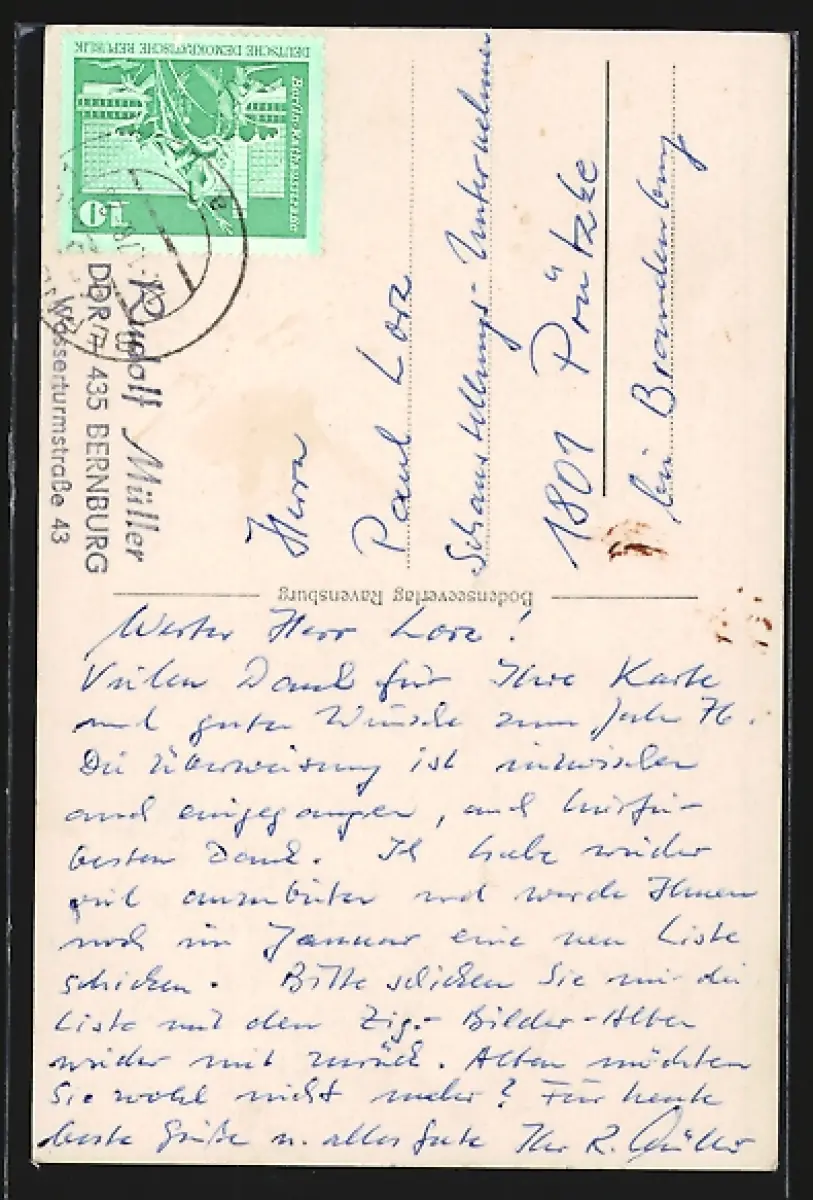 DEUTSCHE DEMOKRATISCHE REPUBLIK
Berlin-Rathausstraße
10
Rudolf Müller
DDR / 435 BERNBURG
Wasserturmstraße 43
Herrn
Paul Lorz
Schaustellungs-Unternehmer
1801 Prützke
bei Brandenburg
Bodenseeverlag Ravensburg
Werter Herr Lorz!
Vielen Dank für Ihre Karte
und guten Wünsche zum Jahr 76.
Die Überweisung ist inzwischen
auch eingegangen, auch hierfür
besten Dank. Ich habe wieder
viel anzubieten und werde Ihnen
noch im Januar eine neue Liste
schicken. Bitte schicken Sie mir die
Liste mit den Zig.-Bilder-Alben
wieder mit zurück. Alben möchten
Sie wohl nicht mehr? Für heute
beste Grüße u. alles gute Ihr R. Müller